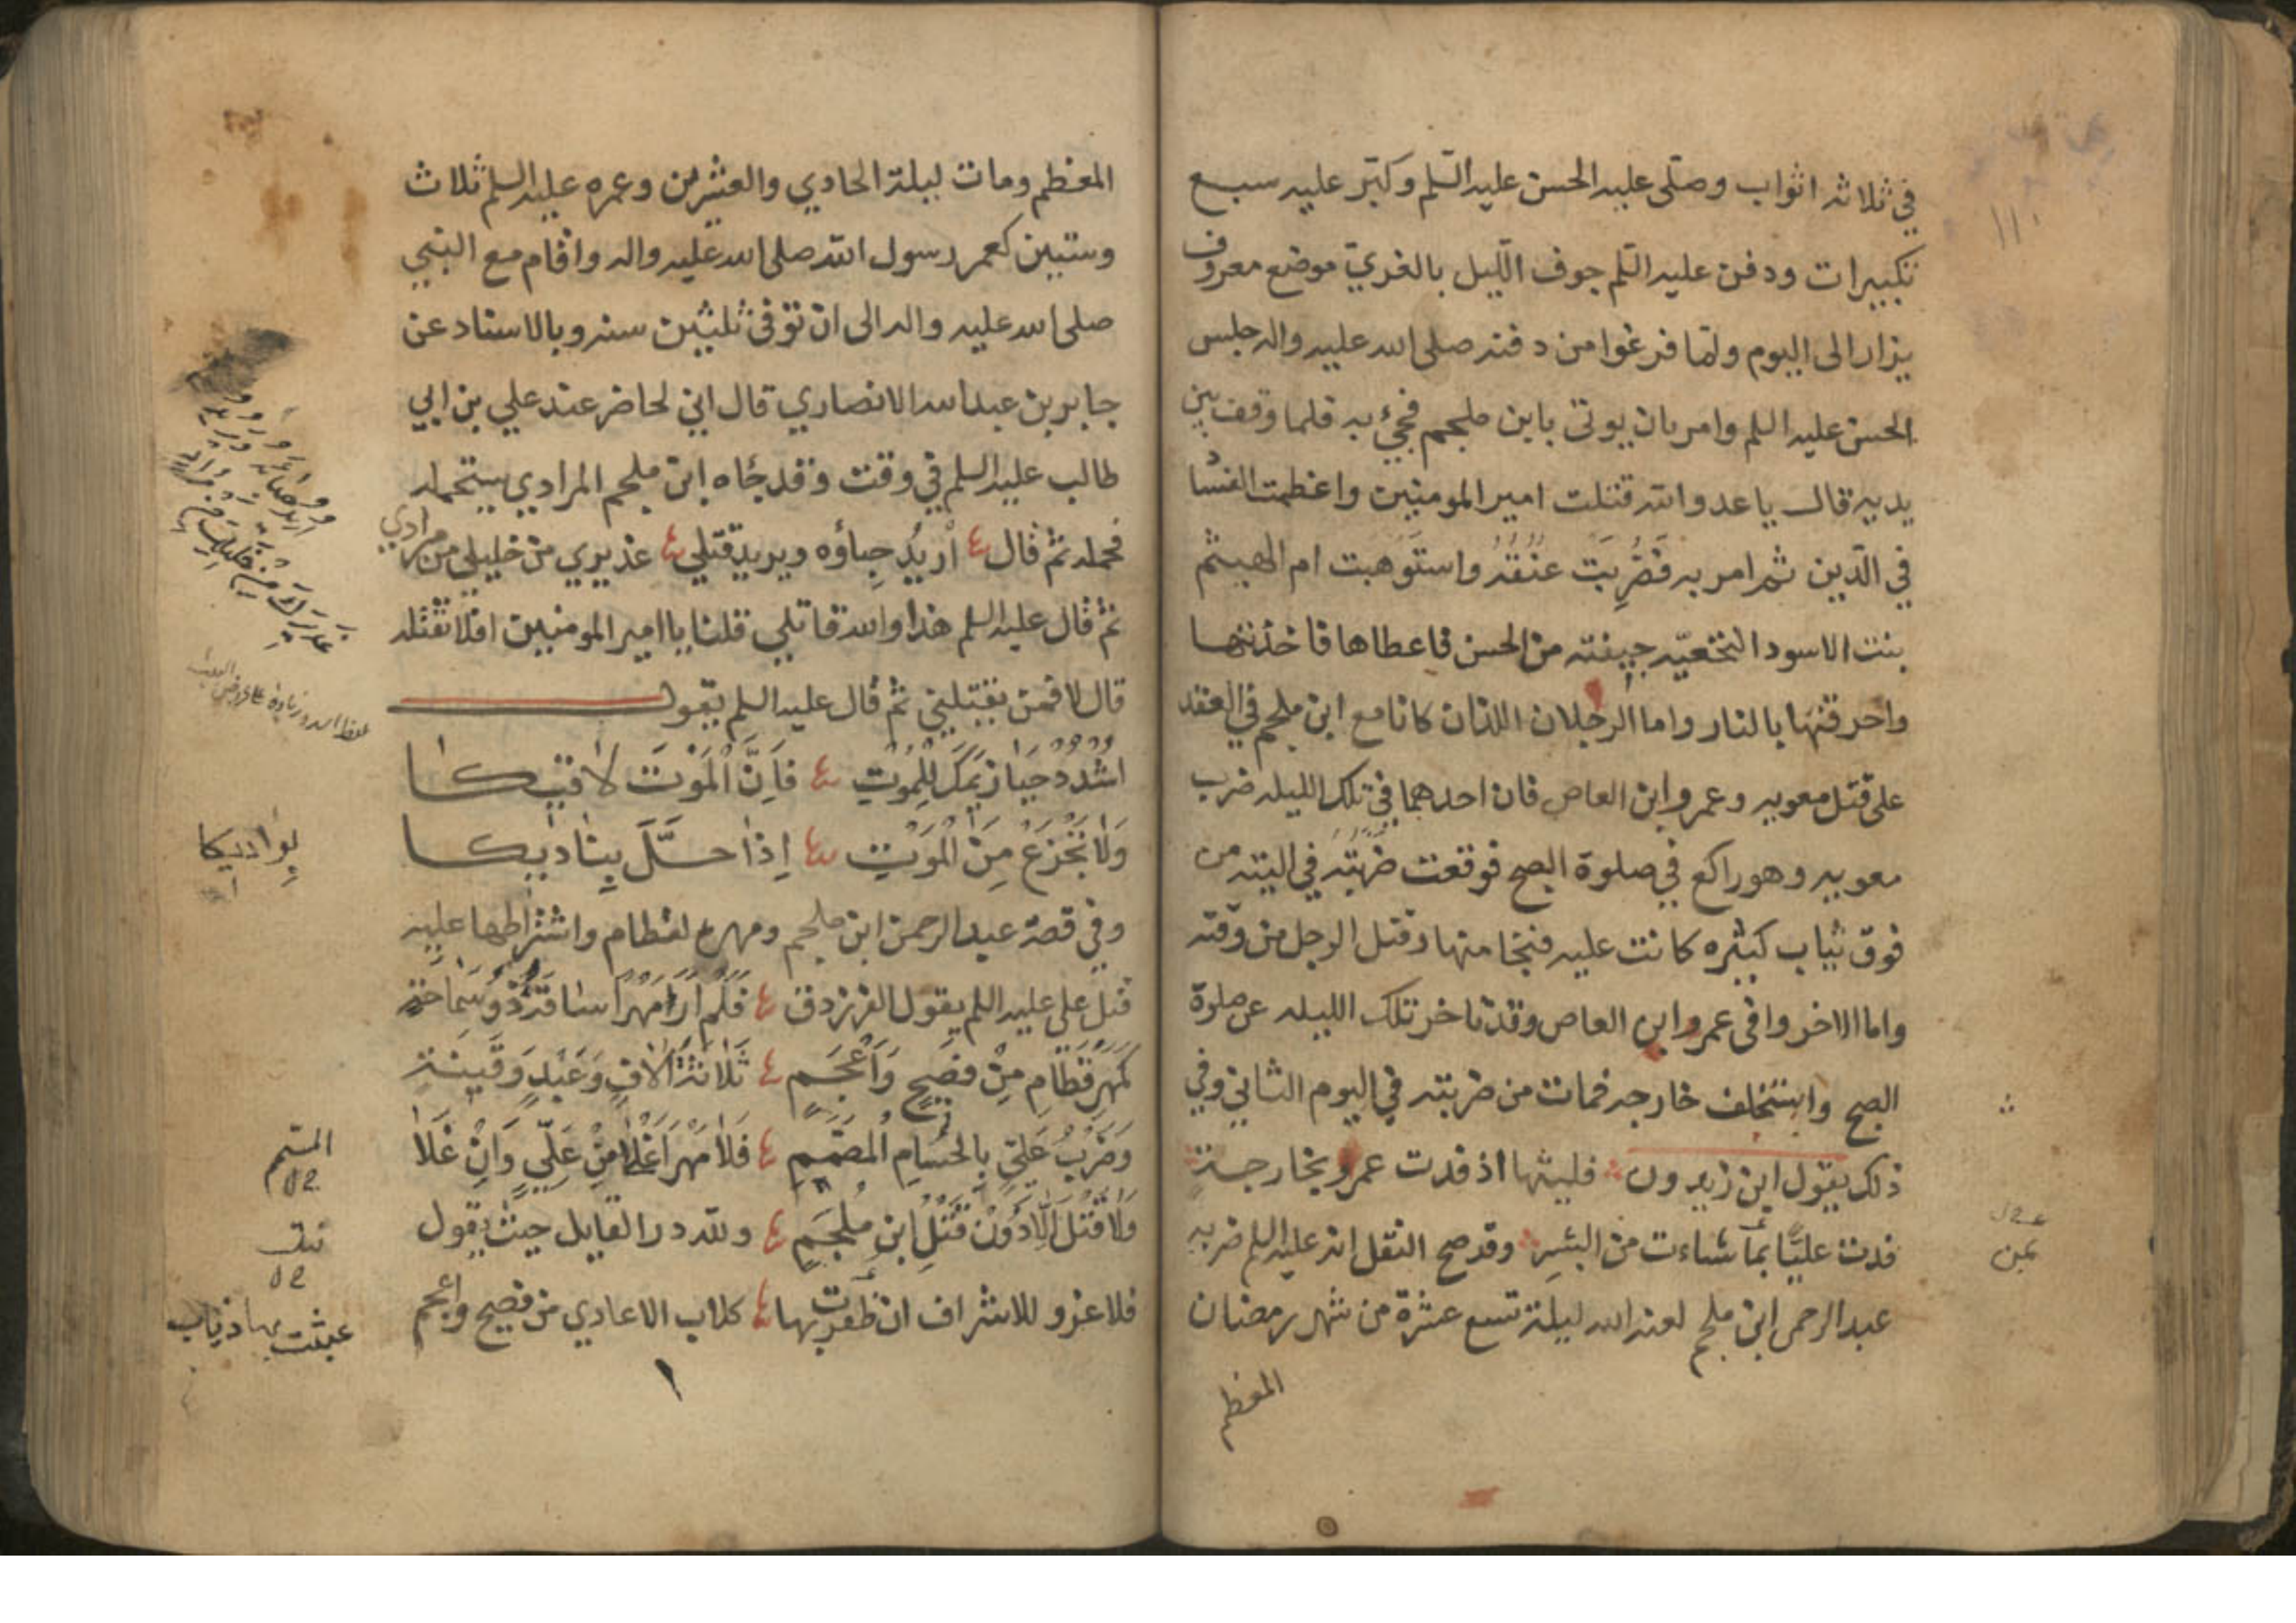 في ثلاثه اثواب وصلى عليه الحسن عليه السلم وكبّر عليه سبع
تكبيرات ودفن عليه السلم جوف الليل بالغريّ موضع معروف
يزار الى اليوم ولمّا فرغوا من دفنه صلى الله عليه واله جلس
الحسن عليه السلم وامر بان يوتى بابن ملجم فجئ به فلما وقف بين
يديه قال يا عدو الله قتلت امير المومنين واعظمت الفسا
في الدّين ثم امر به فضُرِبَت عنُقُه واستوهبت ام الهيثم
بنت الاسود النخعيّه جيفته من الحسن فاعطاها فاخذتها
واحرقتها بالنار واما الرجلان اللذان كانا مع ابن ملجم في العقد
على قتل معويه وعمرو ابن العاص فان احدهما في تلك الليله ضرب
معويه وهو راكع في صلوة الصبح فوقعت ضربَتُه في اليته من
فوق ثياب كثيره كانت عليه فنجا منها وقتل الرجل من وقته
واما الاخر وافى عمرو ابن العاص وقد تاخر تلك الليله عن صلوة
الصبح واستخلف خارجه فمات من ضربته في اليوم الثاني وفي
ذلك يقول ابن زيدون فليتها اذ فدت عمرو بخارجة
فدت عليًّا بمأ شاءت من البشرِ وقد صح النقل انه عليه السلم ضربه
عبد الرحمن ابن ملجم لعنه الله ليلة تسع عشرة من شهر رمضان
المعظم
١١٠
بمن
المعظم ومات ليلة الحادي والعشرين وعمره عليه السلم ثلاث
وستين كعمر رسول الله صلى الله عليه واله واقام مع النبي
صلى الله عليه واله الى ان توفى ثلثين سنه وبالاسناد عن
جابر بن عبد الله الانصاري قال اني لحاضر عند علي بن ابي
طالب عليه السلم في وقت وقد جاه ابن ملجم المرادي يستحمله
فحمله ثم قال اُريدُ حِباؤه ويريد قتلي عذيري من خليلي من مرادي
ثم قال عليه السلم هذا والله قاتلي قلنا يا امير المومنين افلا تقتله
قال لا فمن يقتلني ثم قال عليه السلم يقول
اشْدُدْ حَيازيمَكَ لِلْمَوْتِ فاِنَّ اْلمَوْتَ لاٰقيكا
وَلاٰ تَجْزَعْ مِنَ الْمَوْتِ اِذاٰ حَلَّ بِنٰاديكا
وفي قصة عبد الرحمن ابن ملجم ومهره لقطام واشتراطها عليه
قتل علي عليه السلم يقول الفرزدق فَلَمْ اَرَ مَهْرًا سٰاقَهُ ذُو سَمٰاحَةٍ
كمَهرِ قَطٰامِ مِنْ فصَيحٍ وَاَعْجَمِ ثَلاٰثَةَ اٰلاٰفٍ وَعَبْدٍ وَقَينَةٍ
وَضَرْبُ عَليٍّ بِالحُسٰامِ المُصَمَّمِ فَلاٰ مَهْرَ اَغْلاٰ مِنْ عَلِيٍّ وَاِنْ غَلاٰ
وَلاٰ قَتْلَ اِلّاٰ دُونَ قَتْلِ ابنِ مُلجَمِ ولله در القايل حيث يقول
فلا غزو للاشراف ان ظفرت بها كلاب الاعادي من فصيح واعجم
بِوٰاديكا
عبثت بها ذياب